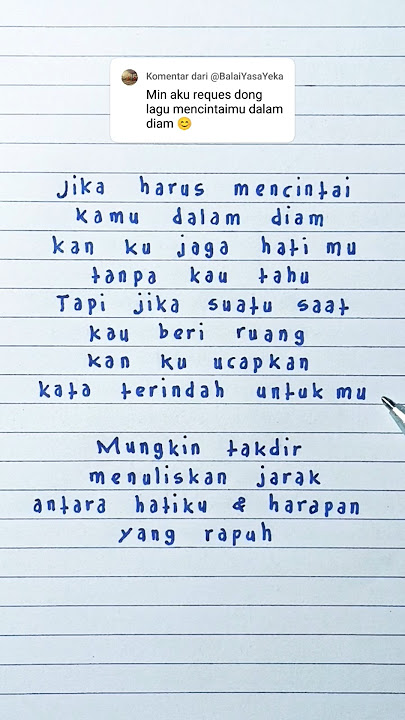 Komentar dari @BalaiYasaYeka
Min aku reques dong
lagu mencintaimu dalam
diam 😊
jika harus mencintai
kamu dalam diam
kan ku jaga hati mu
tanpa kau tahu
Tapi jika suatu saat
kau beri ruang
kan ku ucapkan
kata terindah untuk mu
Mungkin takdir
menuliskan jarak
antara hatiku & harapan
yang rapuh